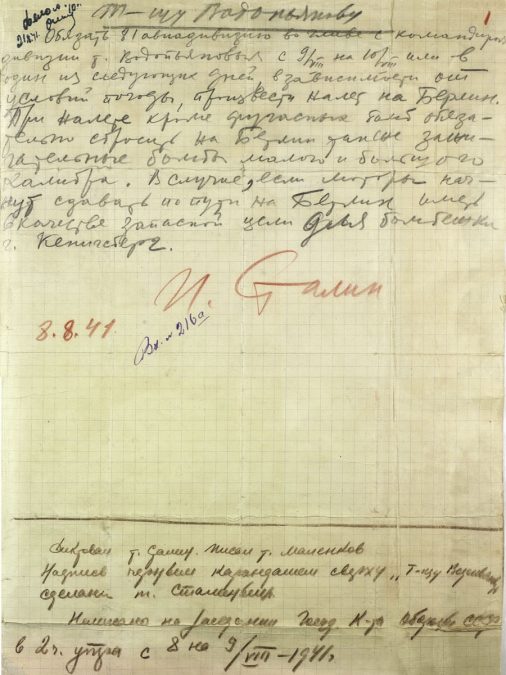 Т-щу Водопьянову
1
Обязать 81 авиадивизию во главе с командиром
дивизии т. Водопьяновым с 9/VIII на 10/VIII или в
один из следующих дней, в зависимости от
условий погоды, произвести налет на Берлин.
При налете кроме фугасных бомб обяза-
тельно сбросить на Берлин также зажи-
гательные бомбы малого и большого
калибра. В случае, если моторы нач-
нут сдавать по пути на Берлин иметь
в качестве запасной цели для бомбежки
г. Кенигсберг.
И. Сталин
8.8.41
Вх. № 216а
Диктовал т. Сталин. Писал т. Маленков
Надпись черным карандашом сверху „Т-щу Водопьянову
сделана т. Сталиным.
Написано на заседании Госуд. К-та Обороны СССР
в 2 ч. утра с 8 на 9/VIII-1941г.